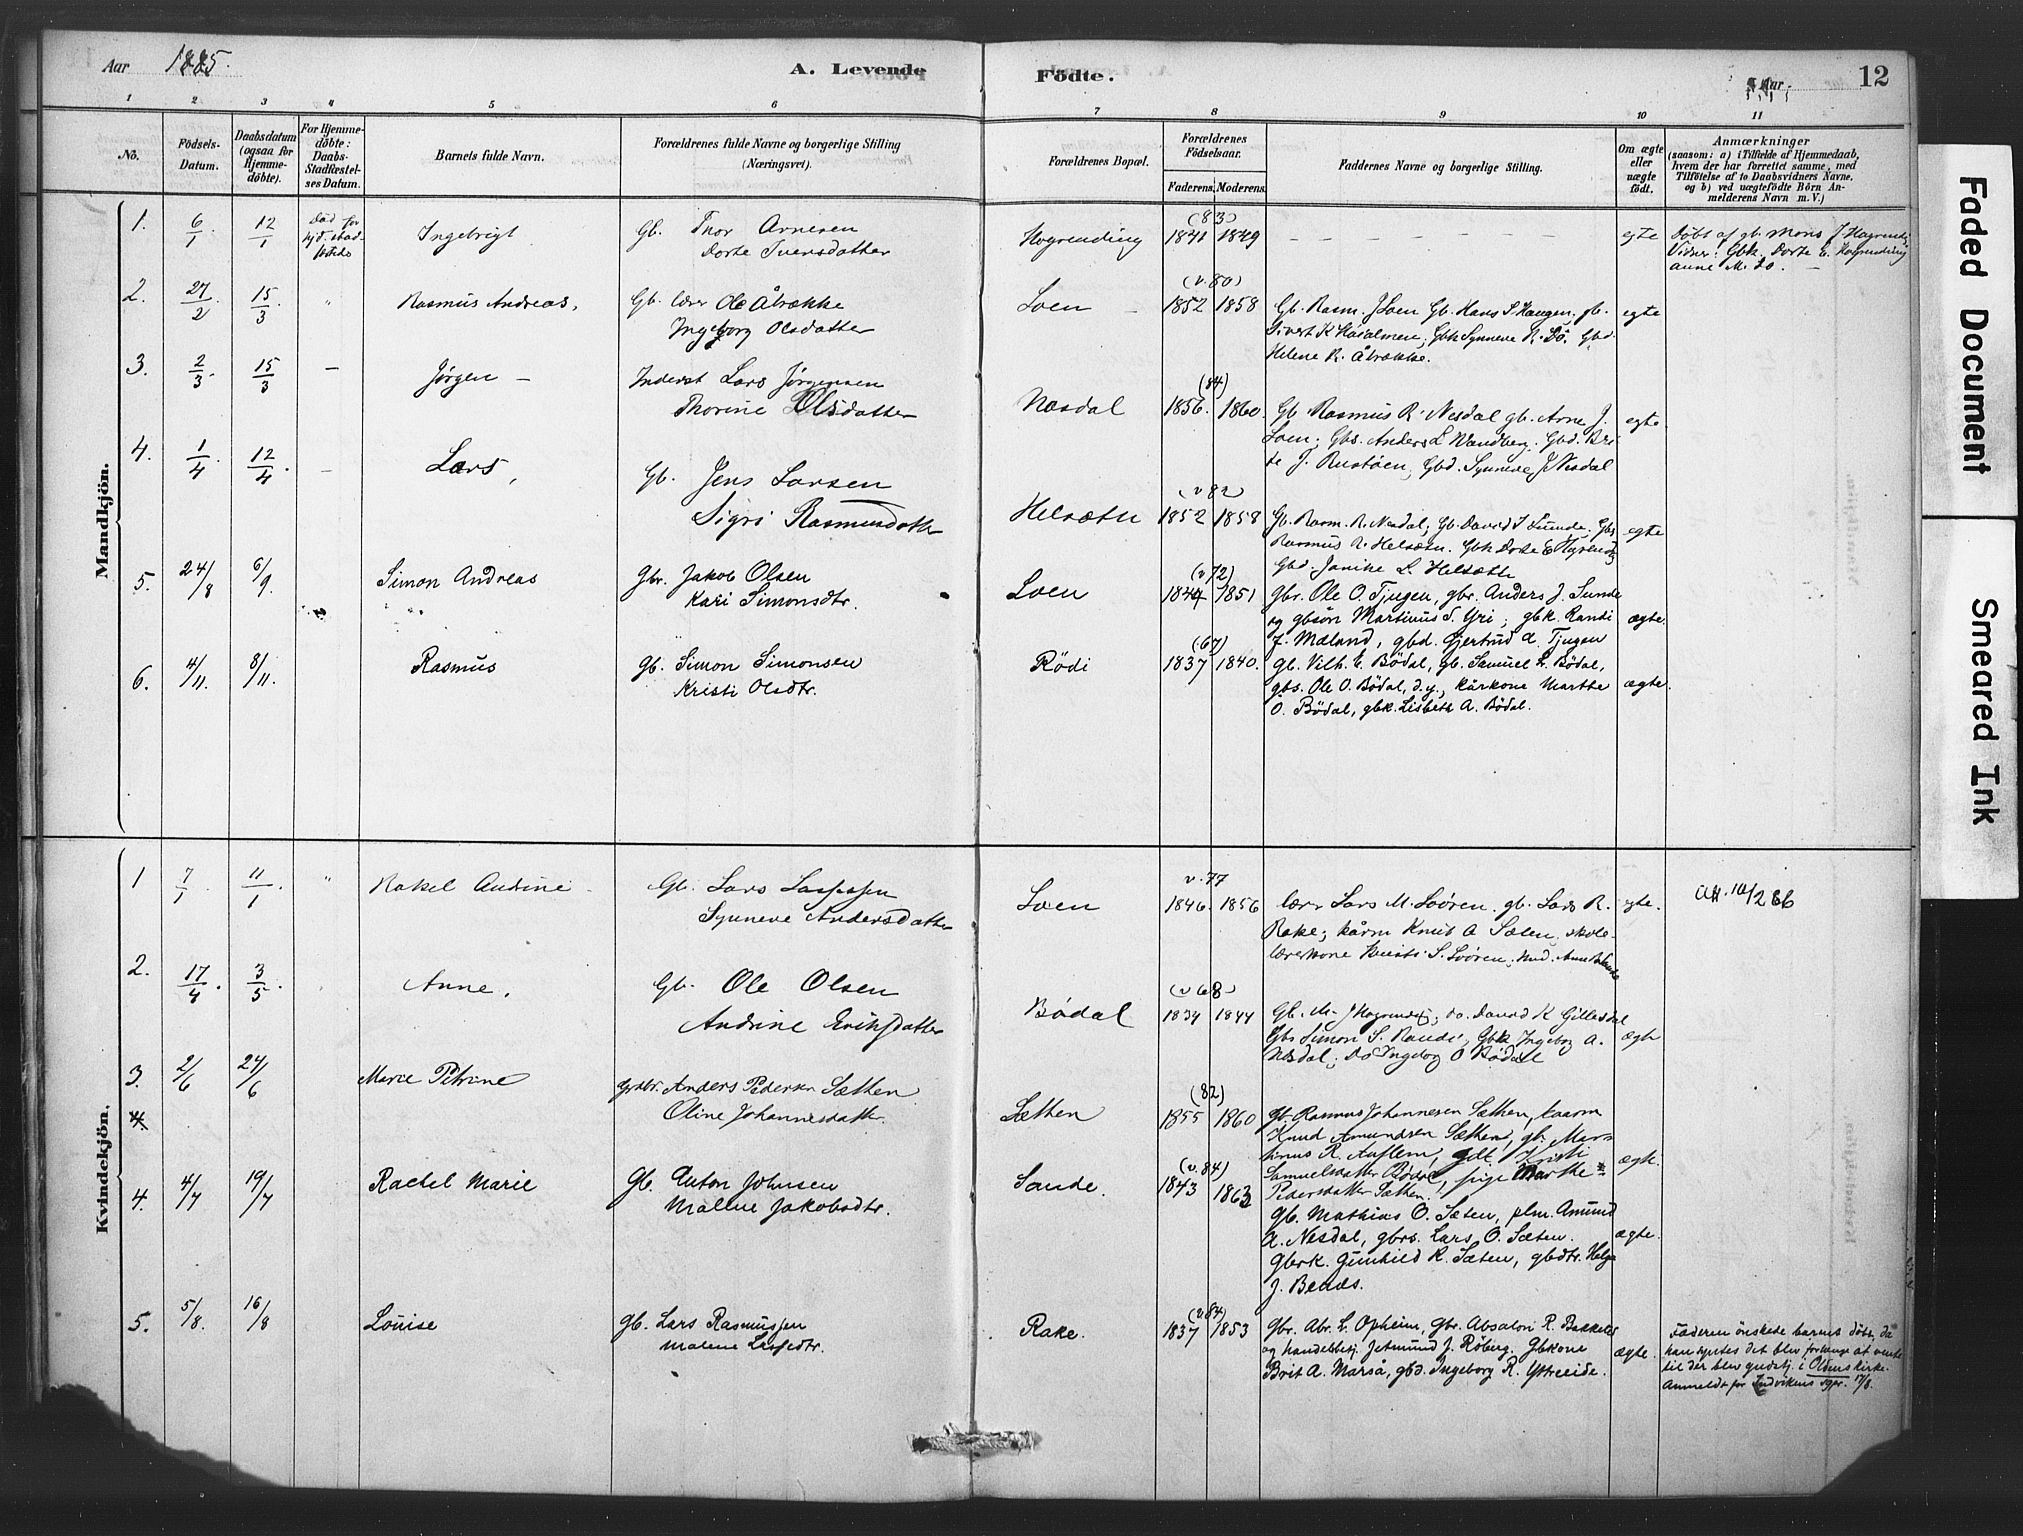 Aar 1885.
A. Levende Fødte.
Aar
12
1 2 3 4 5 6 7 8 9 10 11
No.
Fødsels-Datum.
Daabsdatum (ogsaa for Hjemme-døbte).
For Hjemme-døbte: Daabs-Stadfæstel-ses Datum.
Barnets fulde Navn.
Forældrenes fulde Navne og borgerlige Stilling (Næringsvei).
Forældrenes Bopæl.
Forældrenes Fødselsaar.
Faderens. Moderens.
Faddernes Navne og borgerlige Stilling.
Om ægte eller uægte født.
Anmærkninger
(saasom: a) i Tilfælde af Hjemmedaab, hvem der har forrettet samme, med Tilføielse af to Daabsvidners Navne, og b) ved uægtefødte Børn An-melderens Navn m. V.)
Mandkjøn.
1. 6/1 12/1 Død før
Ingebrigt
Gb. Thor Arnesen
Dorte Iversdatter
Hogrending
(83)
1841 1849
– – – – – –
egte
Døbt af gb. Mons J. Hogrend.
Vidner: Gbk. Dorte E. Hogrending
Anne M. Do.
2. 27/2 15/3 "
Rasmus Andreas,
Gb. lærer Ole Åbrække
Ingeborg Olsdatter
Loen
(v. 80)
1852 1858
Gb. Rasm. J Loen Gb. Hans S Haugen, gb.
Sivert K Gbk Synneve R. Gbd.
Helene R. Åbrække.
egte
3. 2/3 15/3 –
Jørgen –
Inderst Lars Jørgensen
Thorine Olsdatter
Næsdal
(84)
1856. 1860.
Gb. Rasmus R. Nesdal gb. Arne J.
Loen; Gbs. Anders L Wandberg. Gbd. Bri
te J. Rustøen, Gbd. Synneve J Nesdal
egte
4. 1/4 12/4. –
Lars,
Gb. Jens Larsen
Sigri Rasmusdatter
Helsætn
(v 82)
1852 1858
Gb. Rasm. R. Nesdal; Gb. David J Sunde. Gbs
Rasmus R. Helsætn. Gbk Dorte E Hogrend
Gbd. Janike L. Helsætn
egte
5. 24/8 6/9.
Simon Andreas
Gbr. Jakob Olsen
Kari Simonsdtr.
Loen
(v 72)
1844 1851
gbr. Ole O. Tjugen, gbr. Anders J. Sunde
og gbsøn Martinus S. Yri; gbk. Randi
J. Mæland, gbd. Gjertrud A. Tjugen
ægte.
6. 4/11. 8/11.
Rasmus
gb. Simon Simonsen
Kristi Olsdtr.
Rødi
(67)
1837 1840.
gb. Vilh. E. Bødal, gb. Samuel R. Bødal,
gbs. Ole O. Bødal, d.y., kårkone Marthe
O. Bødal, gbk. Lisbeth A. Bødal.
ægte.
Kvindekjøn.
1 7/1 11/1. "
Rakel Andrine
Gb. Lars Lassesen
Synneve Andersdatter
Loen
v. 77
1846. 1856
lærer Lars M. Loøren. gb. Lars R.
Rake; kårm Knut A Sæten, skole-
lærerkone S. Loøren.
egte.
Att. 10/2 86
2. 17/4. 3/5.
Anne.
Gb. Ole Olsen
Andrine Eriksdatter
Bødal
(v 68)
1834 1844
Gb. M. J Hogrending; do. David K Gillesdal
Gbs Simon S. Raudi; Gbk Ingeborg A.
Nesdal; Do Ingeborg O Bødal
ægte
3. 2/6 24/6
Marie Petrine
Grdbr. Anders Pedersen Sæthen
Oline Johannesdatter.
Sæthen
(82)
1855 1860
Gb. Rasmus Johannesen Sæthen, kaarm
Knud Amundsen Sæthen, gb. Mar-
tinus R. Auflem, gdt. Kristi
Samuelsdatter Bødal, pige Marthe
Pedersdatter Sæthen
ægte.
4
4. 4/7 19/7
Rachel Marie
gb. Anton Johnsen
Malene Jakobsdtr.
Sande.
(v. 84)
1843 1863
gb. Mathias O. Sæten, plm. Amund
A. Nesdal, gbrs. Lars O. Sæten.
Gbrk. Gunhild R. Sæten, gbdtr. Helga
J. Benæs.
ægte.
5. 5/8. 16/8
Louise
gb. Lars Rasmussen
Malene Lassedtr.
Rake.
(v. 84)
1837 1853
Gbr. Abr. L. Opheim, gbr. Absalon R. Bakkes
og handelsbtj. Jetmund J. Røberg. Gbkone
Brit A. Marså, gbd. Ingeborg R. Ytreeide.
ægte.
Faderen ønskede barnet døbt, da
han syntes det blev forlænge at vente
til der blev gudstj. i Oldens kirke.
Anmeldt for Indvikens sgpr. 17/8.
Faded Document
Smeared Ink